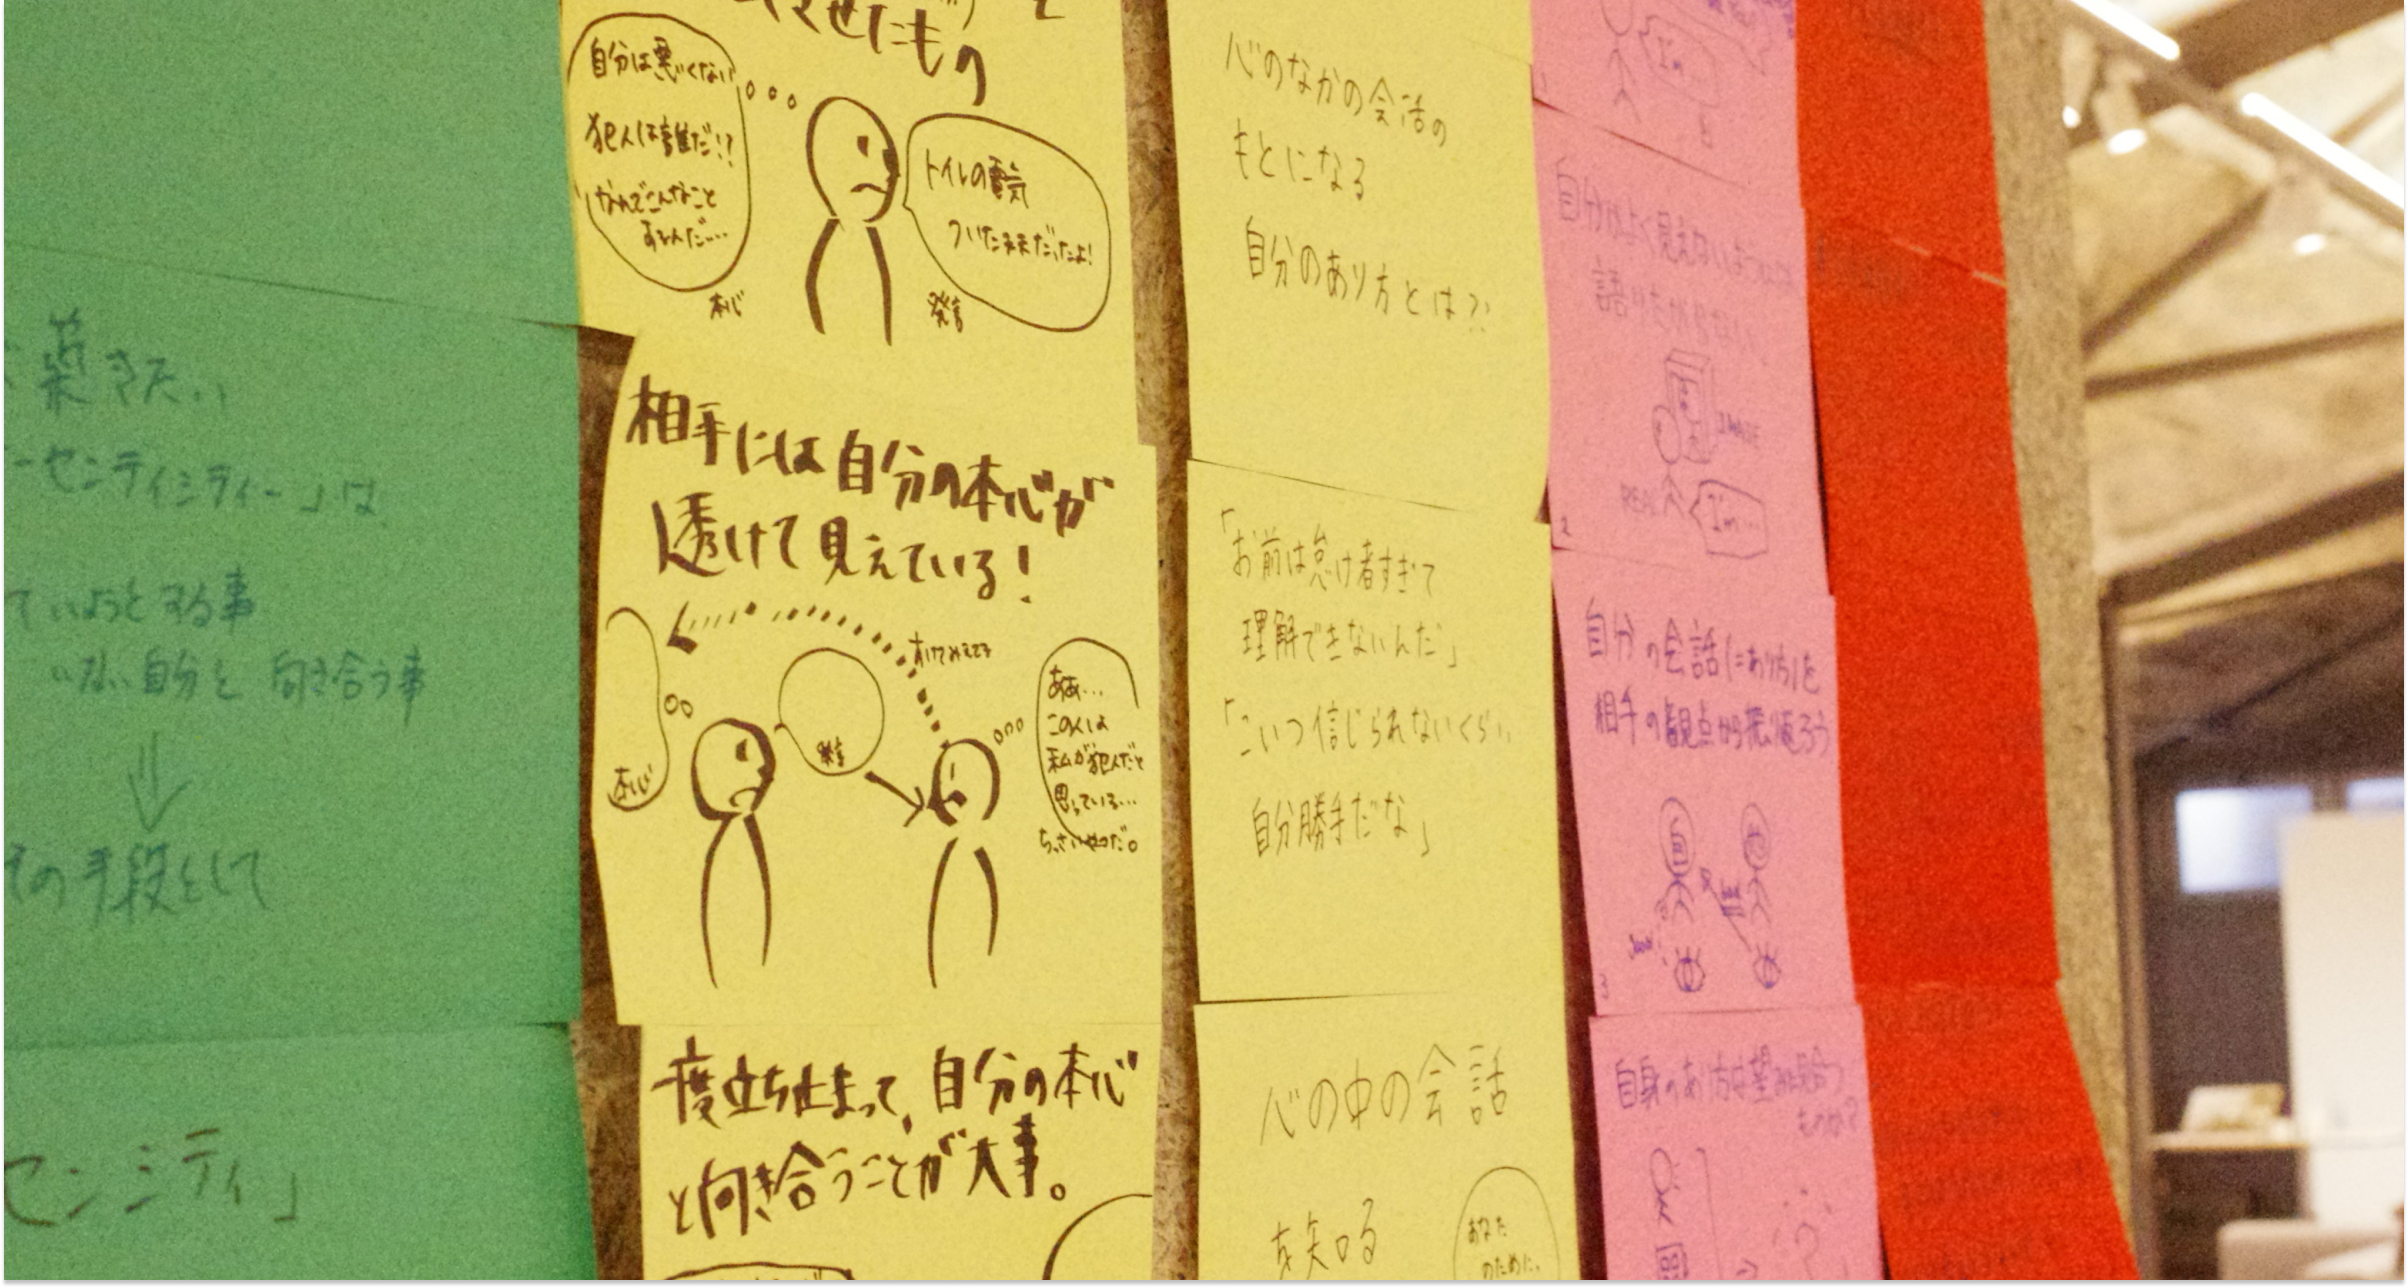 築きたい
ーセンティシティー」は
ていようとする事
いない自分と向き合う事
の手段として
センシティ」
せたもの
自分は悪くない
犯人は誰だ!?
なんでこんなこと
するんだ…
本心
トイレの電気
ついたままだったよ!
発言
相手には自分の本心が
透けて見えている!
すけてみえてる
本心
発言
ああ…
この人は
私が犯人だと
思っている…
ちっさいやつだ。
一度立ち止まって、自分の本心
と向き合うことが大事。
心のなかの会話の
もとになる
自分のあり方とは?
「お前は怠け者すぎて
理解できないんだ」
「こいつ信じられないくらい
自分勝手だな」
心の中の会話
を知る
あなた
のために、
I'm
自分がよく見えないようでは
語りたがらない
IMAGE
REAL
I'm…
2
自分の会話(=あり方)を
相手の観点から振り返ろう
3
自身のあり方は望みに見合う
ものか?